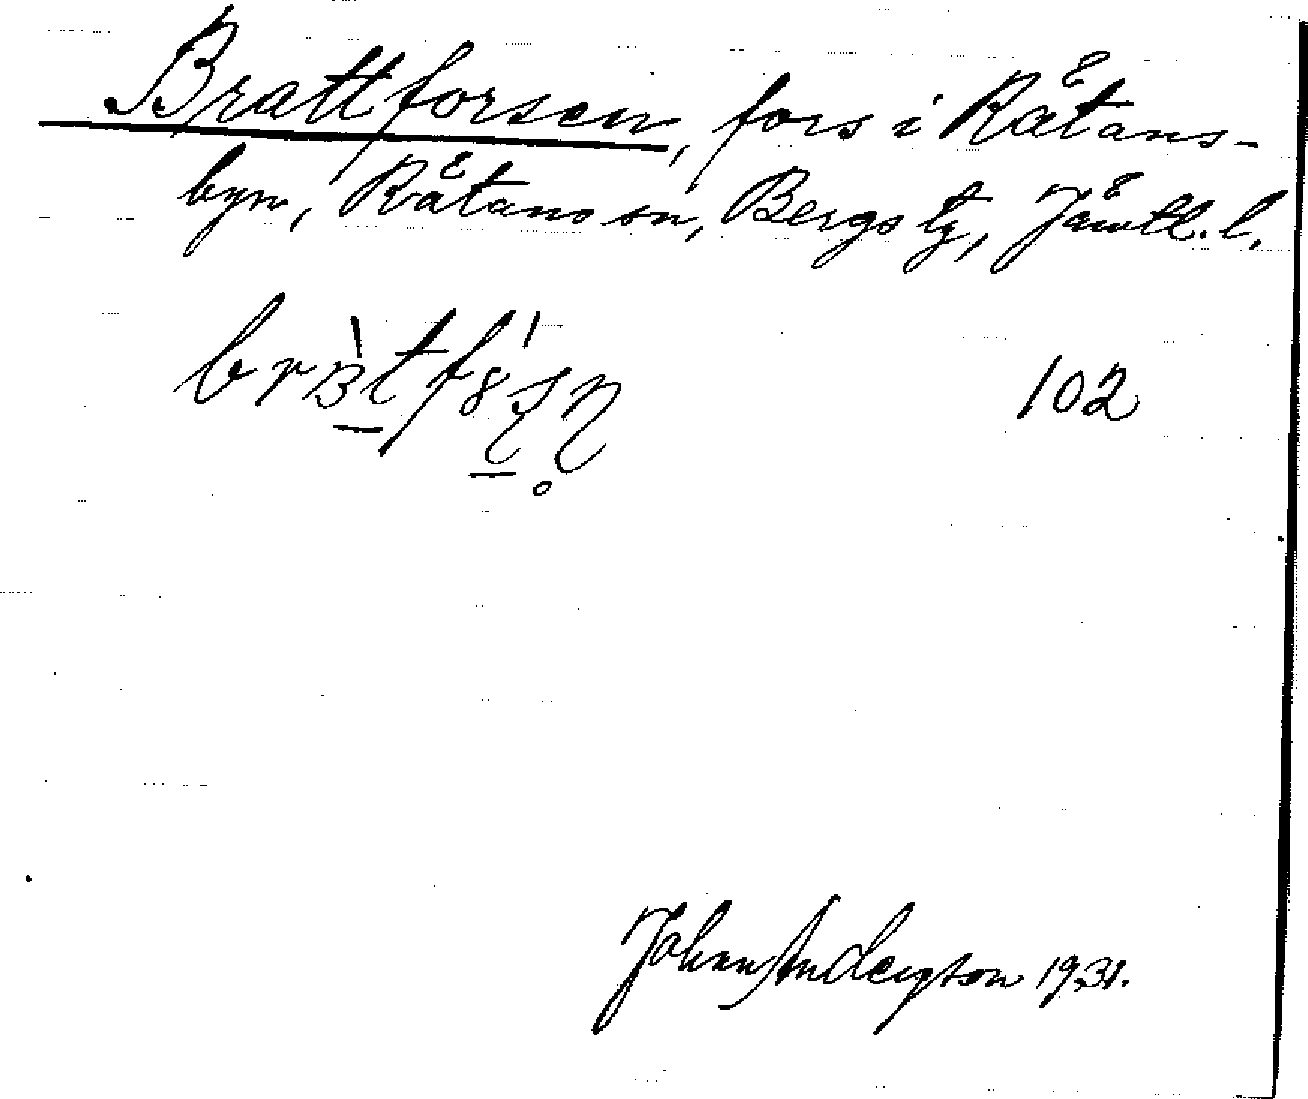 Brattforsen, fors i Rätans-
byn, Rätans sn, Bergs tg, Jämtl. l.
102
Johan Andersson 1931.